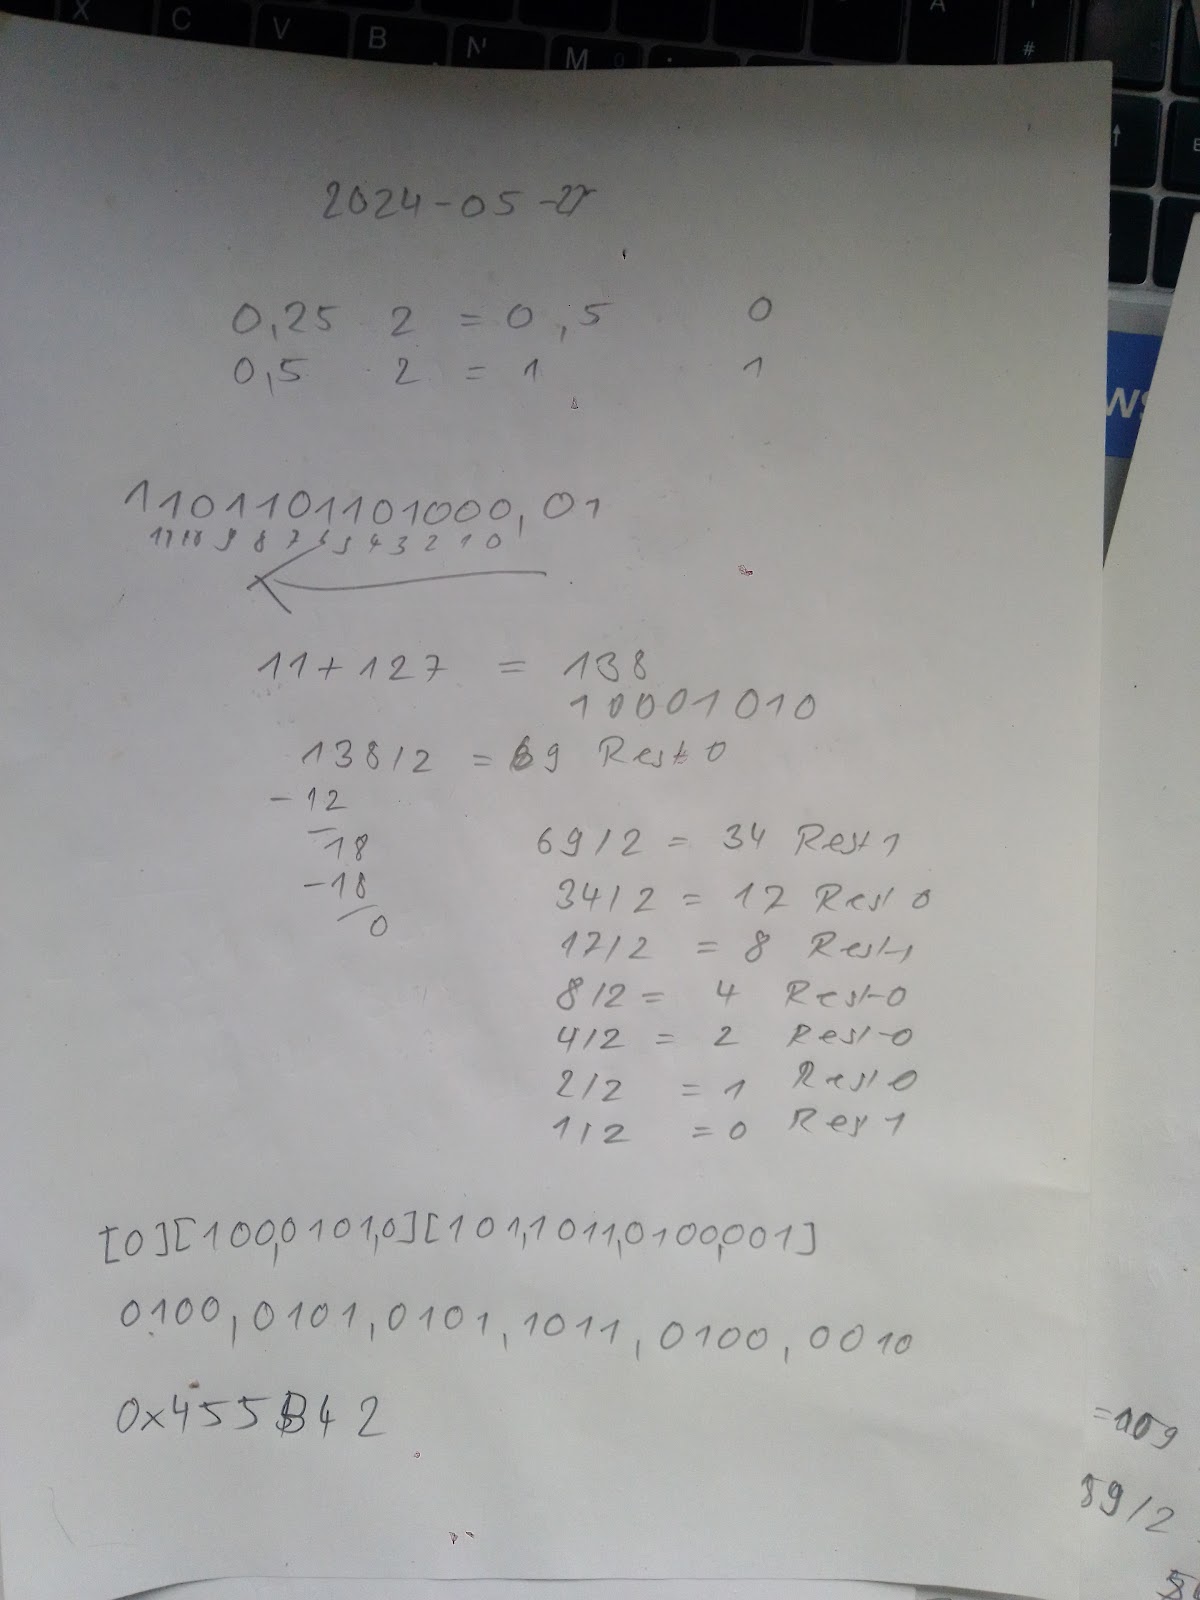 X C V B N M A #
2024-05-27
0,25 2 = 0,5 0
0,5 2 = 1 1
1101101101000,01
11 10 9 8 7 6 5 4 3 2 1 0
11+127 = 138
10001010
138/2 = 69 Rest 0
-12
18
-18
0
69/2 = 34 Rest 1
34/2 = 17 Rest 0
17/2 = 8 Rest 1
8/2 = 4 Rest 0
4/2 = 2 Rest 0
2/2 = 1 Rest 0
1/2 = 0 Res 1
[0][100,0101,0][101,1011,0100,001]
0100,0101,0101,1011,0100,0010
0x455B42
=109
89/2